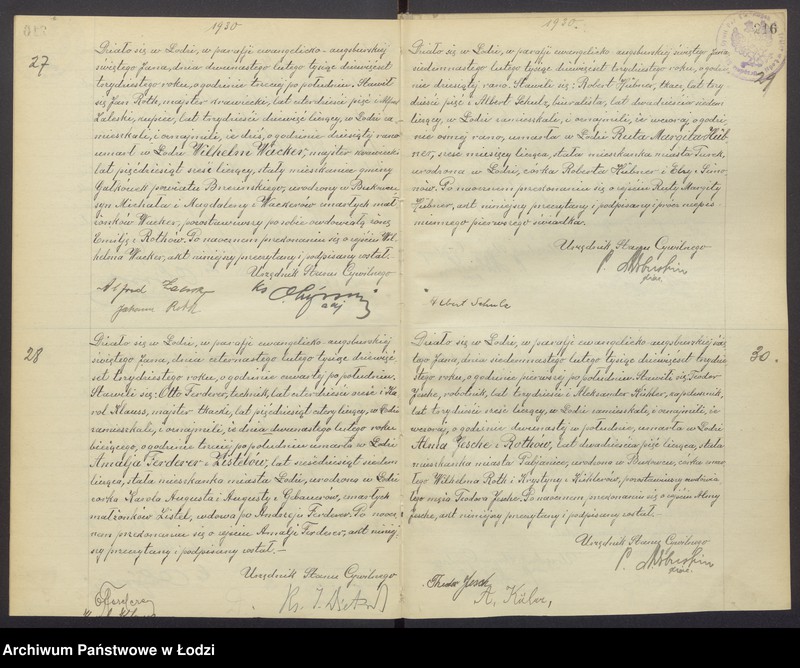 1930
27
Działo się w Łodzi, w parafji ewangelicko-augsburskiej
świętego Jana, dnia dwunastego lutego tysiąc dziewięćset
trzydziestego roku, o godzinie trzeciej po południu. Stawił
się Jan Roth, majster krawiecki, lat czterdzieści pięć i Alfred
Zaleski, kupiec, lat trzydzieści dziewięć liczący, w Łodzi za-
mieszkali, i oznajmili, że dziś, o godzinie dziesiątej rano
umarł w Łodzi Wilhelm Wacker, majster krawiecki
lat pięćdziesiąt sześć liczący, stały mieszkaniec gminy
Gałkówek powiatu Brzezińskiego, urodzony w Bukowcu,
syn Michała i Magdaleny Wackerów zmarłych mał-
żonków Wacker, pozostawiwszy po sobie owdowiałą żonę
Emilję z Rothów. Po naocznem przekonaniu się o zejściu Wil-
helma Wacker, akt niniejszy przeczytany i podpisany został.
Urzędnik Stanu Cywilnego
Alfred Zaleski
Johann Roth
Ks.
28
Działo się w Łodzi, w parafji ewangelicko-augsburskiej
świętego Jana, dnia czternastego lutego tysiąc dziewięć-
set trzydziestego roku, o godzinie czwartej po południu.
Stawili się: Otto Ferderer, technik, lat czterdzieści sześć i Ka-
rol Klauss, majster tkacki, lat pięćdziesiąt cztery liczący, w Łodzi
zamieszkali, i oznajmili, że dnia dwunastego lutego roku
bieżącego, o godzinie trzeciej po południu umarła w Łodzi
Amalja Ferderer z Zistelów, lat sześćdziesiąt siedem
licząca, stała mieszkanka miasta Łodzi, urodzona w Łodzi
córka Karola Augusta i Augusty z małżonków Zistel, wdowa po Andrzeju Ferderer. Po nao-
cznem przekonaniu się o zejściu Amalji Ferderer, akt niniej-
szy przeczytany i podpisany został.—
Urzędnik Stanu Cywilnego
OFerderer
Ks.
1930.
216
29
Działo się w Łodzi, w parafji ewangelicko-augsburskiej świętego Jana,
siedemnastego lutego tysiąc dziewięćset trzydziestego roku, o godzi-
nie dziesiątej rano. Stawili się: Robert Hübner, tkacz, lat trzy-
dzieści pięć i Albert Schulz, biuralista, lat dwadzieścia siedem
liczący, w Łodzi zamieszkali, i oznajmili, że wczoraj o godzi-
nie ósmej rano, umarła w Łodzi Ruta Margita Hüb-
ner, sześć miesięcy licząca, stała mieszkanka miasta Turek,
urodzona w Łodzi, córka Roberta Hübner i Elzy z Simo-
nów. Po naocznem przekonaniu się o zejściu Ruty Margity
Hübner, akt niniejszy przeczytany i podpisany prócz niepi-
śmiennego pierwszego świadka.
Urzędnik Stanu Cywilnego
Albert Schulz
30.
Działo się w Łodzi, w parafji ewangelicko-augsburskiej świę-
tego Jana, dnia siedemnastego lutego tysiąc dziewięćset trzydzie-
stego roku, o godzinie pierwszej po południu. Stawili się: Teodor
Jesche, robotnik, lat trzydzieści i Aleksander Kühler,
lat trzydzieści sześć liczący, w Łodzi zamieszkali, i oznajmili, że
wczoraj, o godzinie dwunastej w południe, umarła w Łodzi
Alma Jesche z Rothów, lat dwadzieścia pięć licząca, stała
mieszkanka miasta Pabjanice, urodzona w Bukowcu, córka zmar-
łego Wilhelma Roth i Krystyny z Kühlerów, pozostawiwszy owdowia-
łego męża Teodora Jesche. Po naocznem przekonaniu się o zejściu Almy
Jesche, akt niniejszy przeczytany i podpisany został.—
Urzędnik Stanu Cywilnego
Theodor Jesche
A. Küler,
Archiwum Państwowe w Łodzi